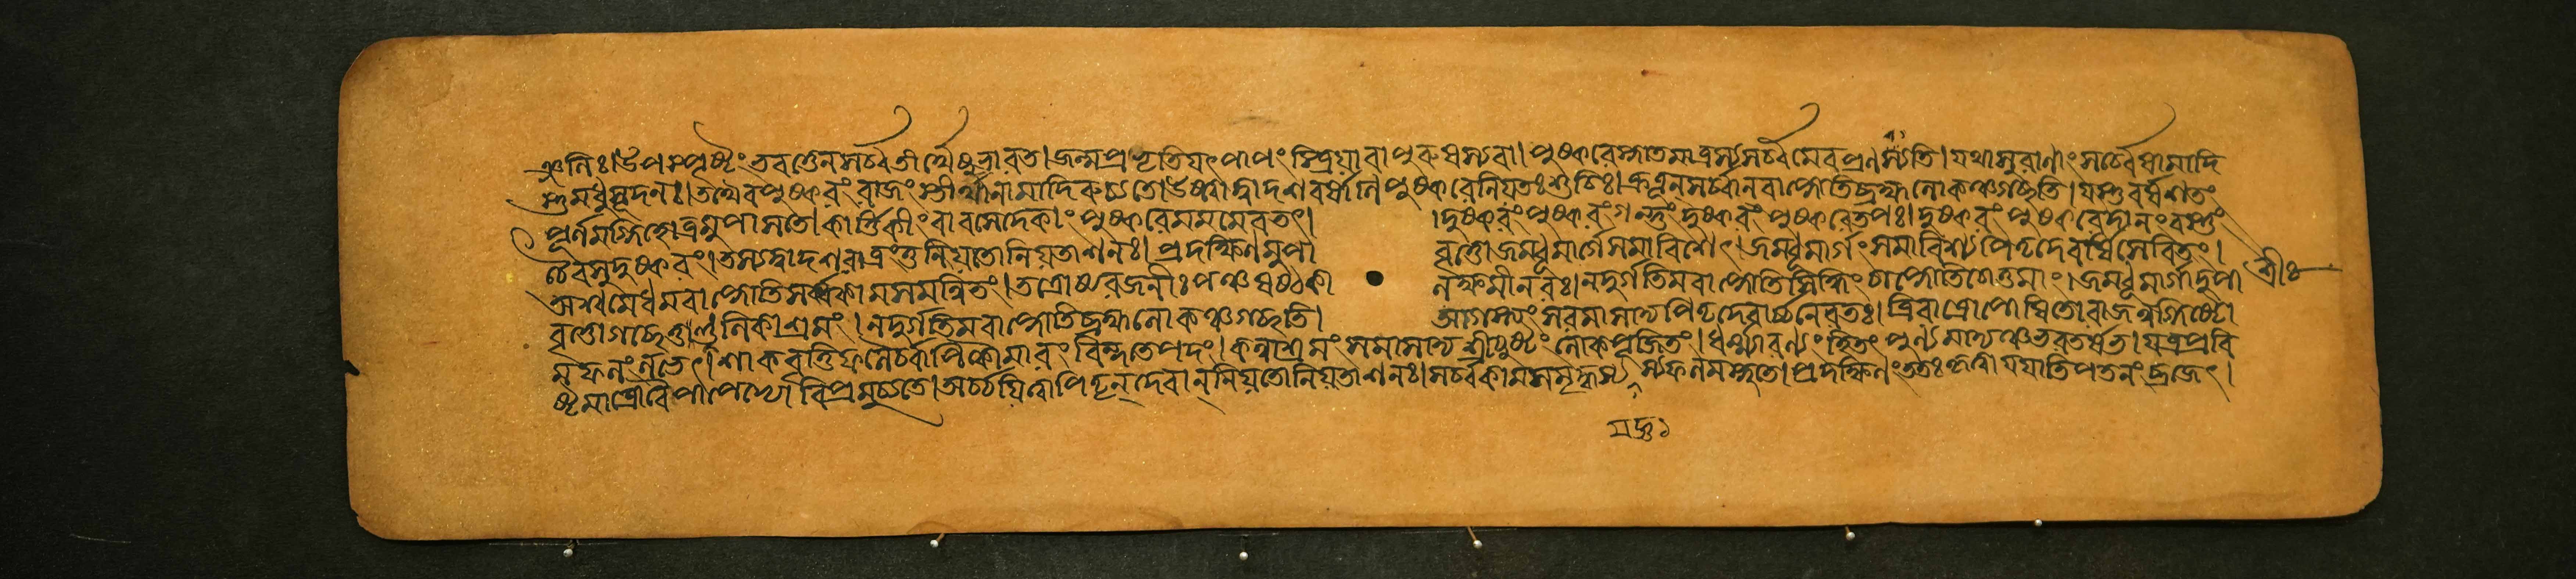 ঞ্জলিঃ।উপস্পৃষ্টং ভবত্তেনসর্ব্বতীর্থেষুভারত।জন্মপ্রভৃতিযৎপাপং স্ত্রিয়াবাপুরুষস্যবা।পুষ্করেস্নাতমাত্রস্যসর্ব্বমেবপ্রণস্যতি।যথাসুরাণাং সর্ব্বেষামাদি
স্তুমধুসূদনঃ।তথৈবপুষ্করংরাজংস্তীর্থানামাদিরুচ্যতে।উষ্যদ্বাদশবর্ষাণিপুষ্করেনিয়তঃশুচিঃ।ক্রতূনসর্ব্বানবাপ্নোতিব্রহ্মলোকঞ্চগচ্ছতি।যস্তুবর্ষশতং
পূর্ণমগ্নিহোত্রমুপাসতে।কার্ত্তিকীংবাবসেদেকাং পুষ্করেসমমেবতৎ। ।দুষ্করংপুষ্করংগন্তুংদুষ্করং পুষ্করেতপঃ।দুষ্করং পুষ্করেদানংবস্তুং
চৈবসুদুষ্করং।তস্যদ্বাদশরাত্রংতুনিয়াতোনিয়তাশনঃ।প্রদক্ষিণমুপা বৃত্তোজম্বূমার্গেসমাবিশেৎ।জম্বূমার্গংসমাবিশ্যপিতৃদেবর্ষিসেবিতং।
অশ্বমেধমবাপ্নোতিসর্ব্বকামসমন্বিতং।তত্রোষ্যরজনীঃপঞ্চষষ্ঠকা লক্ষমীনরঃ।নদুর্গতিমবাপ্নোতিসিদ্ধিংচাপ্নোতিচোত্তমাং।জম্বূমার্গাদুপা শ্রীঃ
বৃত্তোগচ্ছেত্তাণ্ডুলিকাশ্রমং।নদুর্গতিমবাপ্নোতিব্রহ্মলোকঞ্চগচ্ছতি। আগস্ত্যংসরমাসাদ্যপিতৃদেবার্চ্চনেরতঃ।ত্রিরাত্রোপোষিতোরাজন্নগ্নিষ্টো
মফলংলভেৎ।শাকবৃত্তিফলৈর্ব্বাপিকৌমারংবিন্দতেপদং।কন্যাশ্রমংসমাসাদ্য শ্রীপুষ্টং লোকপূজিতং।ধর্ম্মারণ্যংহিতংপুণ্যমাদ্যঞ্চভরতর্ষভ।যত্রপ্রবি
ষ্টমাত্রোবৈপাপেভ্যোবিপ্রমুচ্যতে।অর্চ্চয়িত্বাপিতৄন্দেবান্নিয়তোনিয়তাশনঃ।সর্ব্বকামসমৃদ্ধস্যস্যফলমশ্নুতে।প্রদক্ষিণংততঃকৃত্বাযযাতিপতনংব্রজেৎ।
যজ্ঞ১